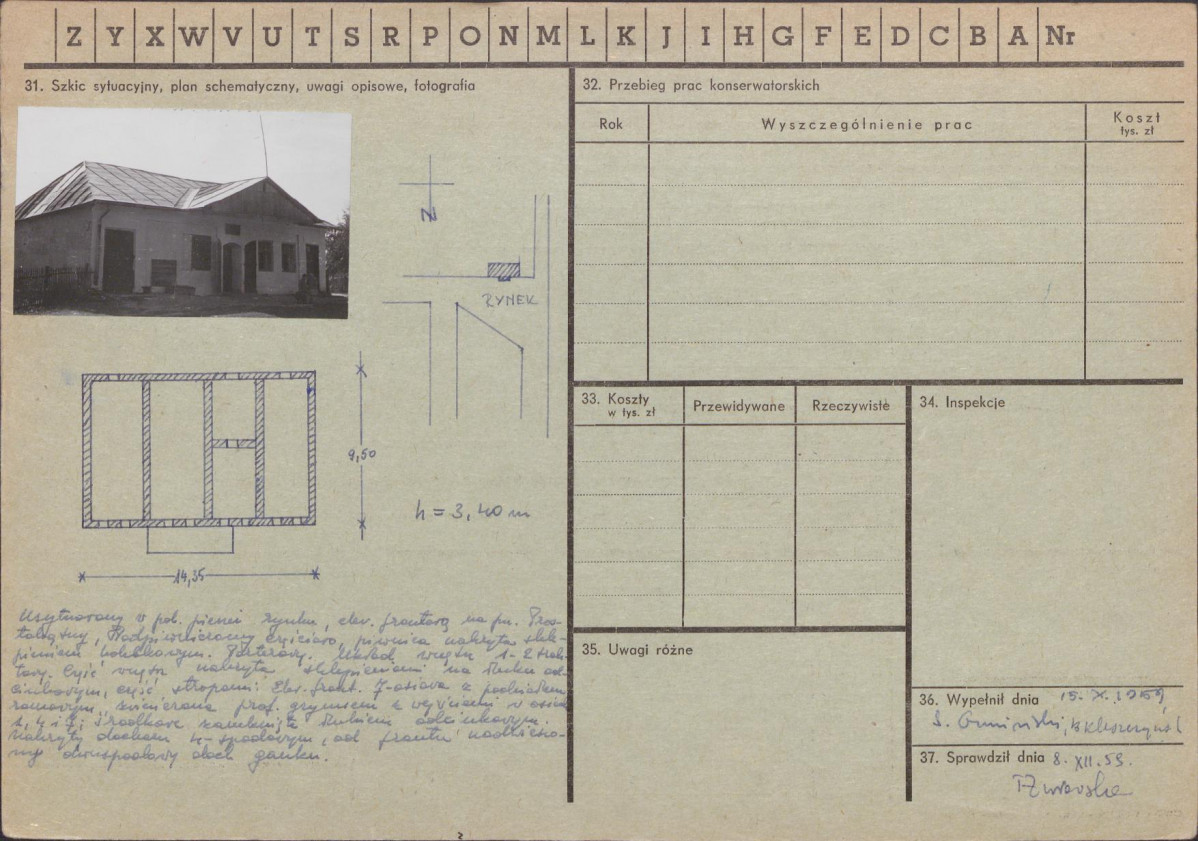 Z Y X W V U T S R P O N M L K J I H G F E D C B A Nr
31. Szkic sytuacyjny, plan schematyczny, uwagi opisowe, fotografia
N
RYNEK
9,50
h = 3,40 m
14,35
Usytuowany w poł. pierzei rynku, elew. frontową na pn. Pros-
tokątny, Podpiwniczony częściowo, piwnica nakryta skle-
pieniem kolebkowym. Parterowy. Układ wnętrz 1-2 trak-
towy. Część wnętrz nakryta sklepieniami na łuku od-
cinkowym, część stropami. Elew. front. 7-osiowa z podziałem
ramowym, zwieńczona prof. gzymsem z wejściami w osiach
1, 4 i 7; środkowe zamknięte łukiem odcinkowym.
Nakryty dachem 4-spadowym, od frontu
dwuspadowy dach ganku.
32. Przebieg prac konserwatorskich
Rok
Wyszczególnienie prac
Koszt
tys. zł
33. Koszty
w tys. zł
Przewidywane
Rzeczywiste
34. Inspekcje
35. Uwagi różne
36. Wypełnił dnia 15. X. 1959
37. Sprawdził dnia 8. XII. 59.